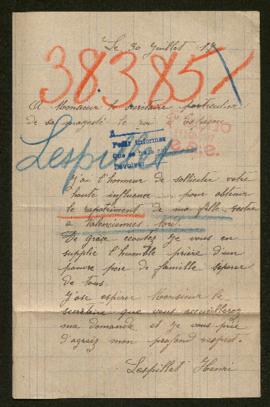 Le 30 Juillet 19
38.385
A Monsieur le secretaire particulier
de sa majesté le roi d'Espagne
Lespillet
A
Pedir informes
que se haga
J'ai l'honneur de solliciter votre
haute influence pour obtenir
le rapatriement de ma fille restée
à Valenciennes Nord.
De grace ecoutez je vous en
supplie l'humble prière d'un
pauvre père de famille séparé
de tous.
J'ose espérer Monsieur le
secrétaire que vous accueillerez
ma demande et je vous prie
d'agréez mon profond respect.
Lespillet Henri